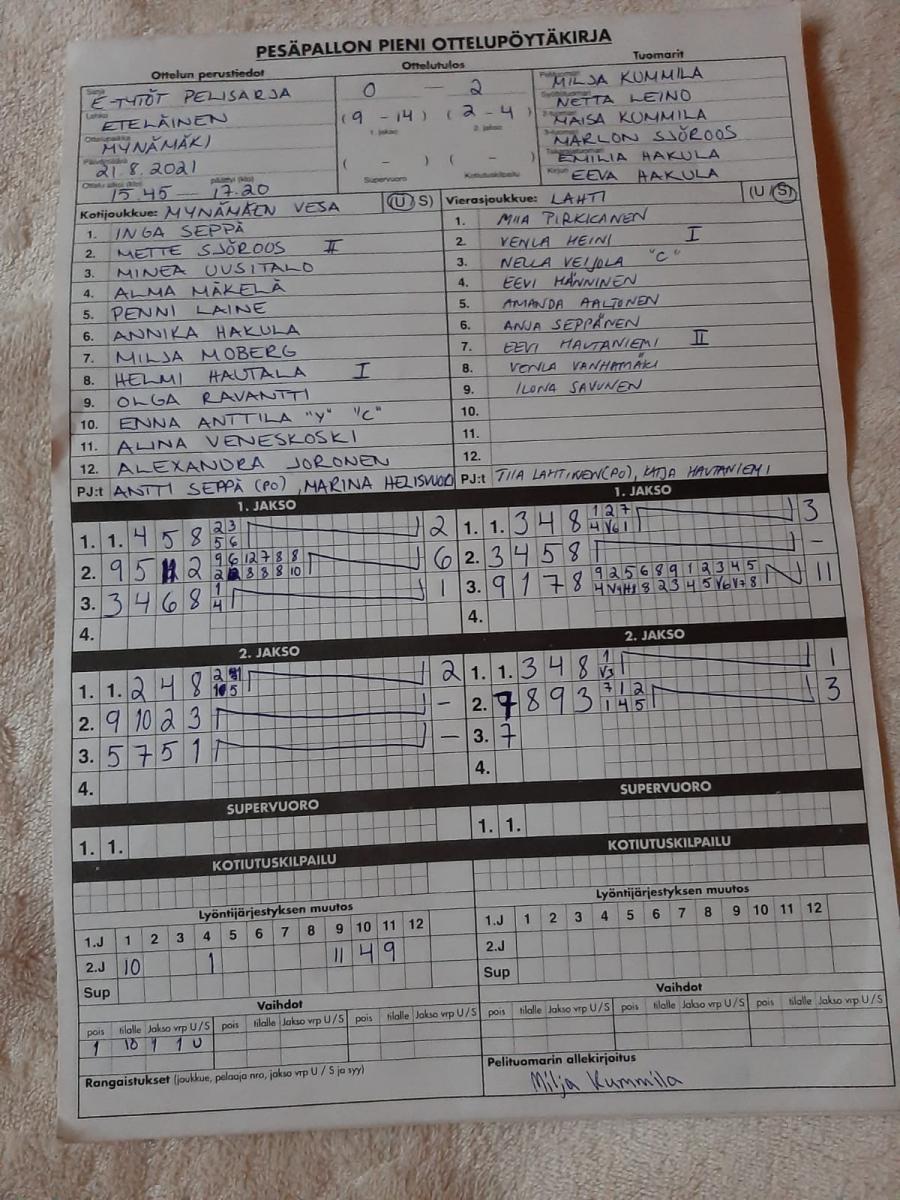 PESÄPALLON PIENI OTTELUPÖYTÄKIRJA
Ottelun perustiedot
Sarja
E-TYTÖT PELISARJA
Lohko
ETELÄINEN
Ottelupaikka
MYNÄMÄKI
Päivämäärä
21.8.2021
Ottelu alkoi (klo) päättyi (klo)
15.45 — 17.20
Ottelutulos
0 — 2
(9 - 14) (2 - 4)
1. jakso 2. jakso
( - ) ( - )
Supervuoro Kotiutuskilpailu
Tuomarit
Pelituomari
MILJA KUMMILA
Syöttötuomari
NETTA LEINO
2-tuomari
MAISA KUMMILA
3-tuomari
MARLON SJÖROOS
Takarajatuomari
EMILIA HAKULA
Kirjuri
EEVA HAKULA
Kotijoukkue: MYNÄMÄEN VESA (U S)
1. INGA SEPPÄ
2. METTE SJÖROOS II
3. MINEA UUSITALO
4. ALMA MÄKELÄ
5. PENNI LAINE
6. ANNIKA HAKULA
7. MILJA MOBERG
8. HELMI HAUTALA I
9. OLGA RAVANTTI
10. ENNA ANTTILA "Y" "C"
11. ALINA VENESKOSKI
12. ALEXANDRA JORONEN
PJ:t ANTTI SEPPÄ (PO), MARINA
Vierasjoukkue: LAHTI (U S)
1. MIIA PIRKKANEN
2. VENLA HEINI I
3. NELLA VEIJOLA "C"
4. EEVI MÄNNINEN
5. AMANDA AALTONEN
6. ANJA SEPPÄNEN
7. EEVI HAUTANIEMI II
8. VENLA VANHAMÄKI
9. ILONA SAVUNEN
10.
11.
12.
PJ:t TIIA LAHTINEN (PO), KATJA HAUTANIEMI
1. JAKSO
1. 1. 4 5 8 2 3 2
5 6
2. 9 5 2 9 6 12 7 8 8 6
2 8 8 8 10
3. 3 4 6 8 1 1
4
4.
1. JAKSO
1. 1. 3 4 8 1 2 7 3
4 V6 1
2. 3 4 5 8 -
3. 9 1 7 8 9 2 5 6 8 9 1 2 3 4 5 11
8 2 3 4 5 V6 V7 8
4.
2. JAKSO
1. 1. 2 4 8 2 2
5
2. 9 10 2 3 -
3. 5 7 5 1 -
4.
2. JAKSO
1. 1. 3 4 8 1 1
V3
2. 7 8 9 3 7 1 2 3
1 4 5
3. 7
4.
SUPERVUORO
1. 1.
SUPERVUORO
1. 1.
KOTIUTUSKILPAILU
Lyöntijärjestyksen muutos
1.J 1 2 3 4 5 6 7 8 9 10 11 12
2.J 10 1 11 4 9
Sup
Vaihdot
pois tilalle Jakso vrp U/S pois tilalle Jakso vrp U/S pois tilalle Jakso vrp U/S
1 10 1 1 U
Rangaistukset (joukkue, pelaaja nro, jakso vrp U / S ja syy)
KOTIUTUSKILPAILU
Lyöntijärjestyksen muutos
1.J 1 2 3 4 5 6 7 8 9 10 11 12
2.J
Sup
Vaihdot
pois tilalle Jakso vrp U/S pois tilalle Jakso vrp U/S pois tilalle Jakso vrp U/S
Pelituomarin allekirjoitus
Milja Kummila